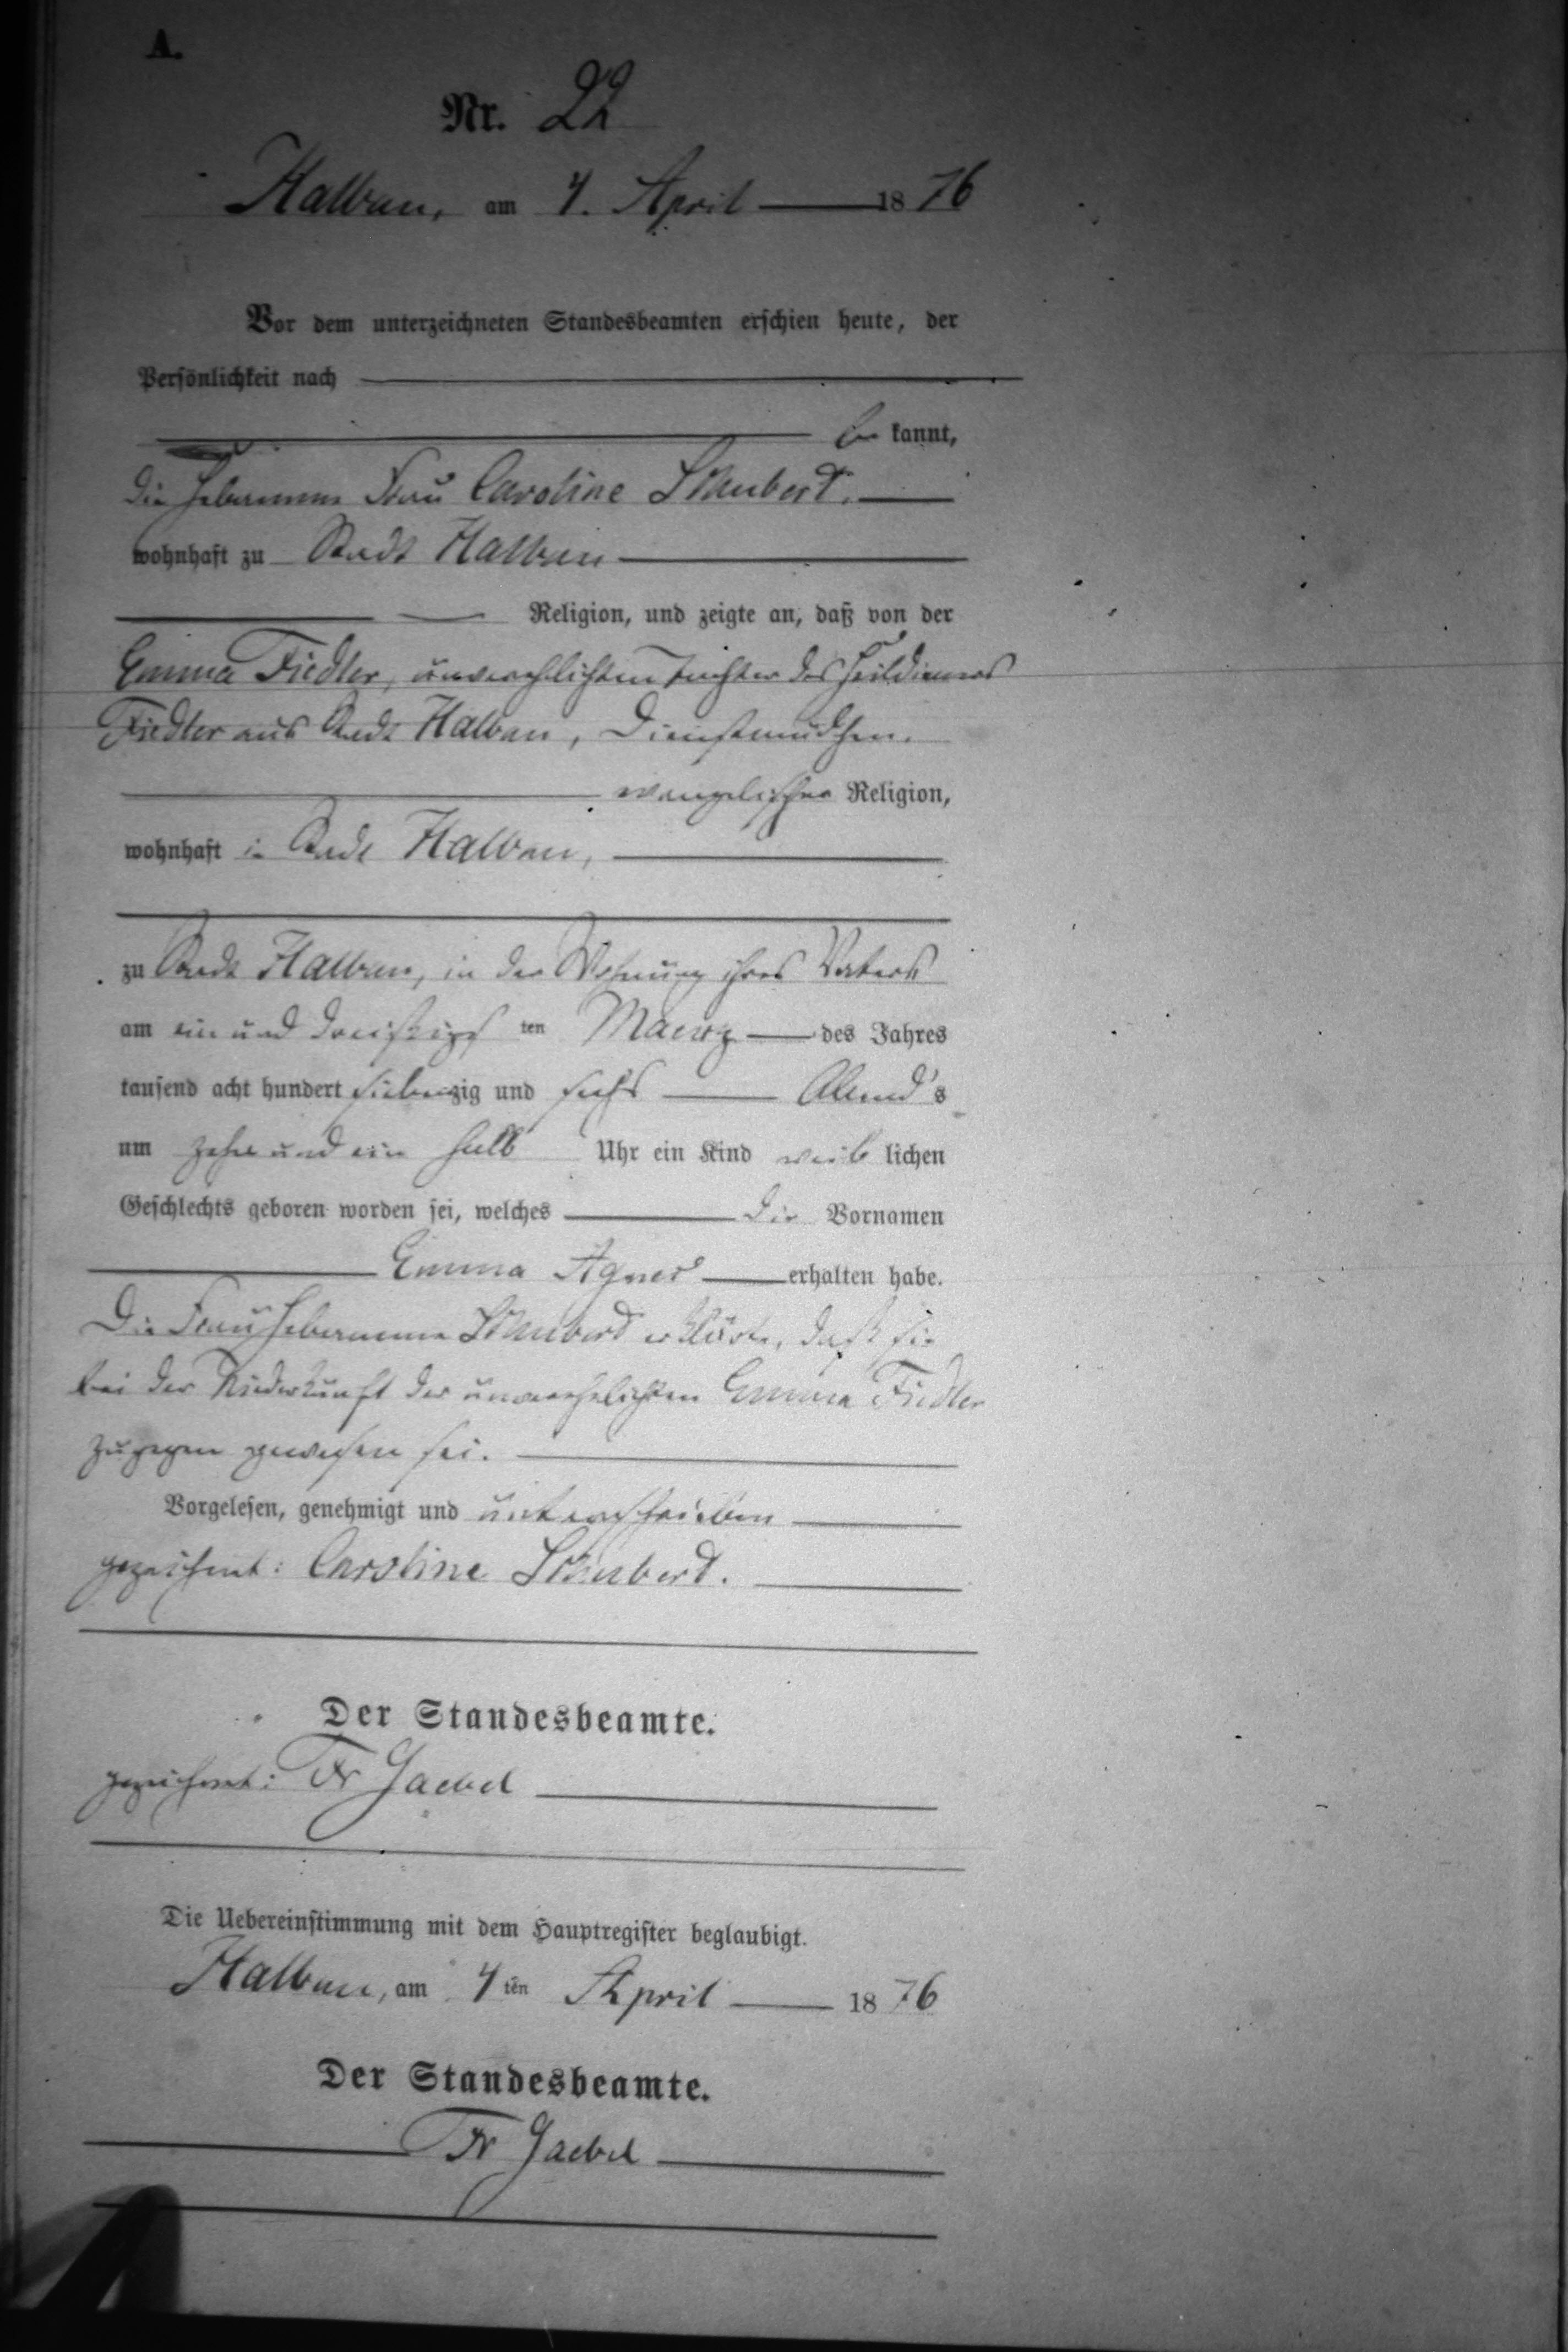 A.
Nr. 22
Halbau, am 4. April 1876
Vor dem unterzeichneten Standesbeamten erschien heute, der
Persönlichkeit nach
be kannt,
die Hebamme Frau Caroline Schubert.
wohnhaft zu Stadt Halbau
Religion, und zeigte an, daß von der
Emma Fiedler, unverehlichten Tochter des Heildieners
Fiedler aus Stadt Halbau, Dienstmädchen.
evangelischer Religion,
wohnhaft in Stadt Halbau,
zu Stadt Halbau, in der Wohnung ihres Vaters
am ein und dreißigsten Maerz des Jahres
tausend acht hundert siebenzig und sechs Abend's
um zehn und ein halb Uhr ein Kind weiblichen
Geschlechts geboren worden sei, welches die Vornamen
Emma Agnes erhalten habe.
Die Frau Hebamme Schubert erklärte, daß sie
bei der Niederkunft der unverehelichten Emma Fiedler
zugegen gewesen sei.
Vorgelesen, genehmigt und unterschrieben
gezeichnet: Caroline Schubert.
Der Standesbeamte.
gezeichnet: Fr Gaebel
Die Uebereinstimmung mit dem Hauptregister beglaubigt.
Halbau, am 4ten April 1876
Der Standesbeamte.
Fr Gaebel